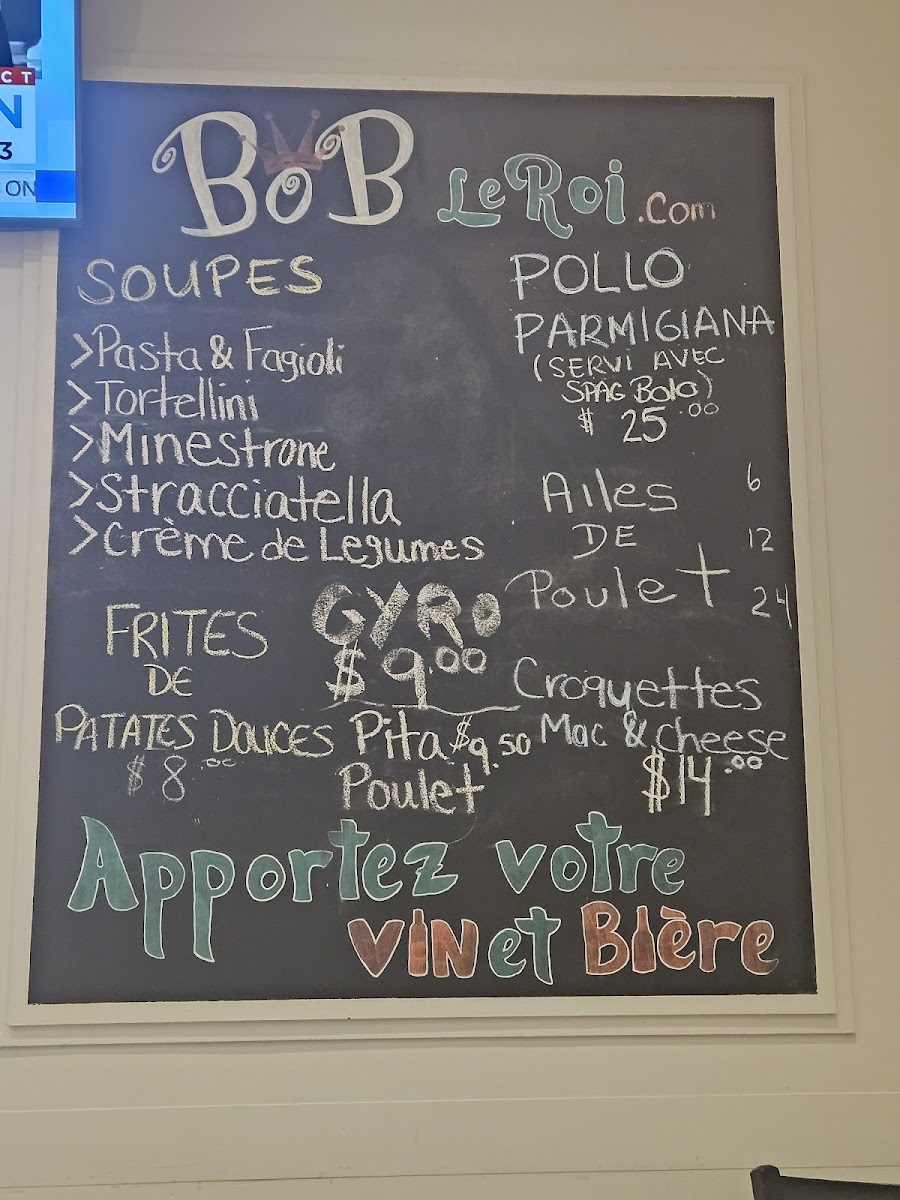 CT
N
3
ON
BoB LeRoi.com
SOUPES
>Pasta & Fagioli
>Tortellini
>Minestrone
>Stracciatella
>Crème de Legumes
POLLO
PARMIGIANA
(SERVI AVEC
SPAG Bolo)
$ 25.00
Ailes 6
DE 12
Poulet 24
FRITES
DE
PATATES DOUCES
$ 8.00
GYRO
$9.00
Pita $9.50
Poulet
Croquettes
Mac & cheese
$14.00
Apportez votre
vin et Bière